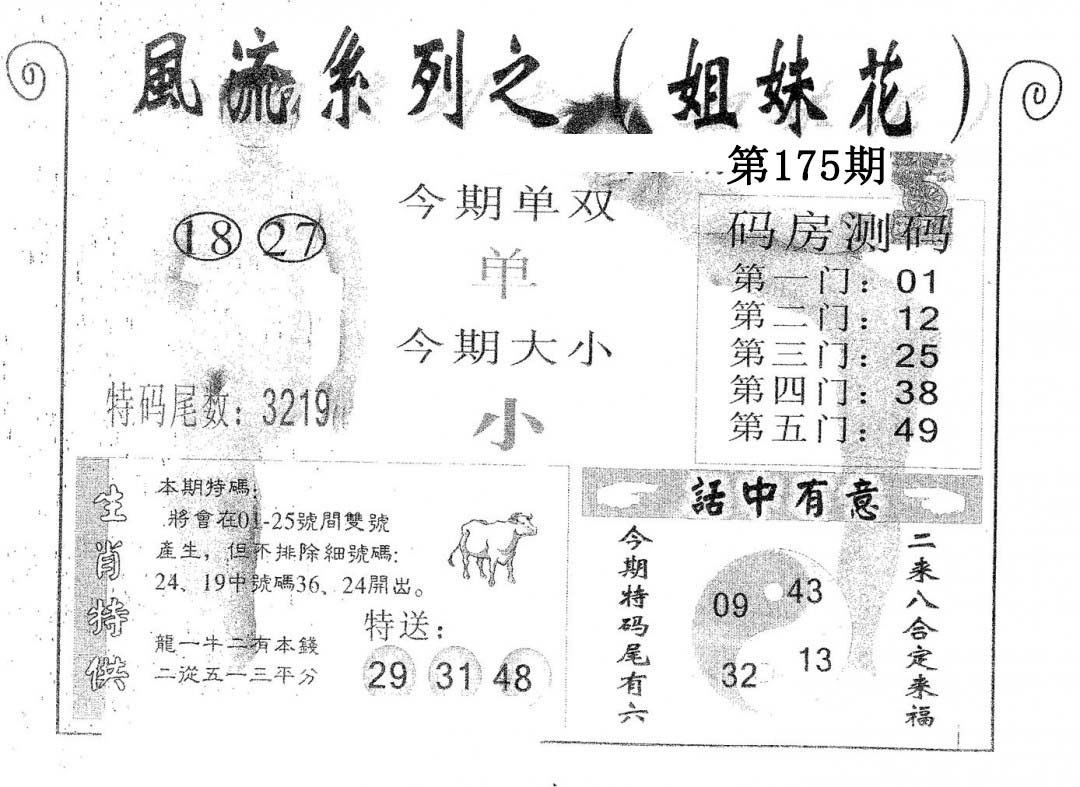 風流系列之（姐妹花）
第175期
18 27
今期单双
单
今期大小
小
特码尾数：3219
码房测码
第一门：01
第二门：12
第三门：25
第四门：38
第五门：49
生肖特供
本期特碼：
將會在01-25號間雙號
產生，但不排除細號碼：
24、19中號碼36、24開出。
龍一牛二有本錢
二從五一三平分
特送：
29 31 48
話中有意
今期特码尾有六
09 43
32 13
二来八合定来福